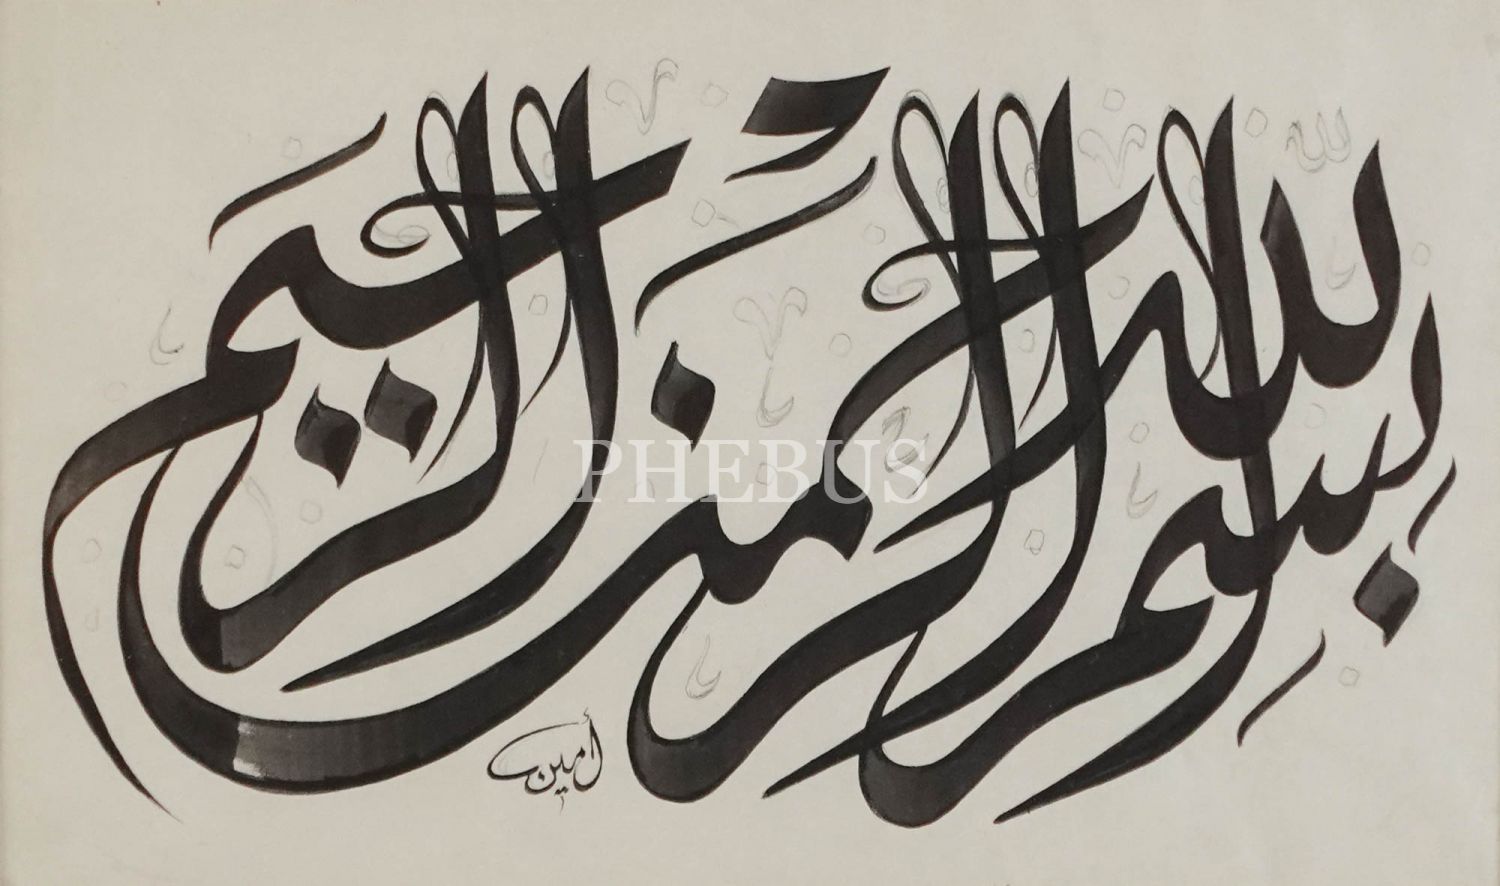 بسم الله الرحمن الرحيم
أمين
PHEBUS